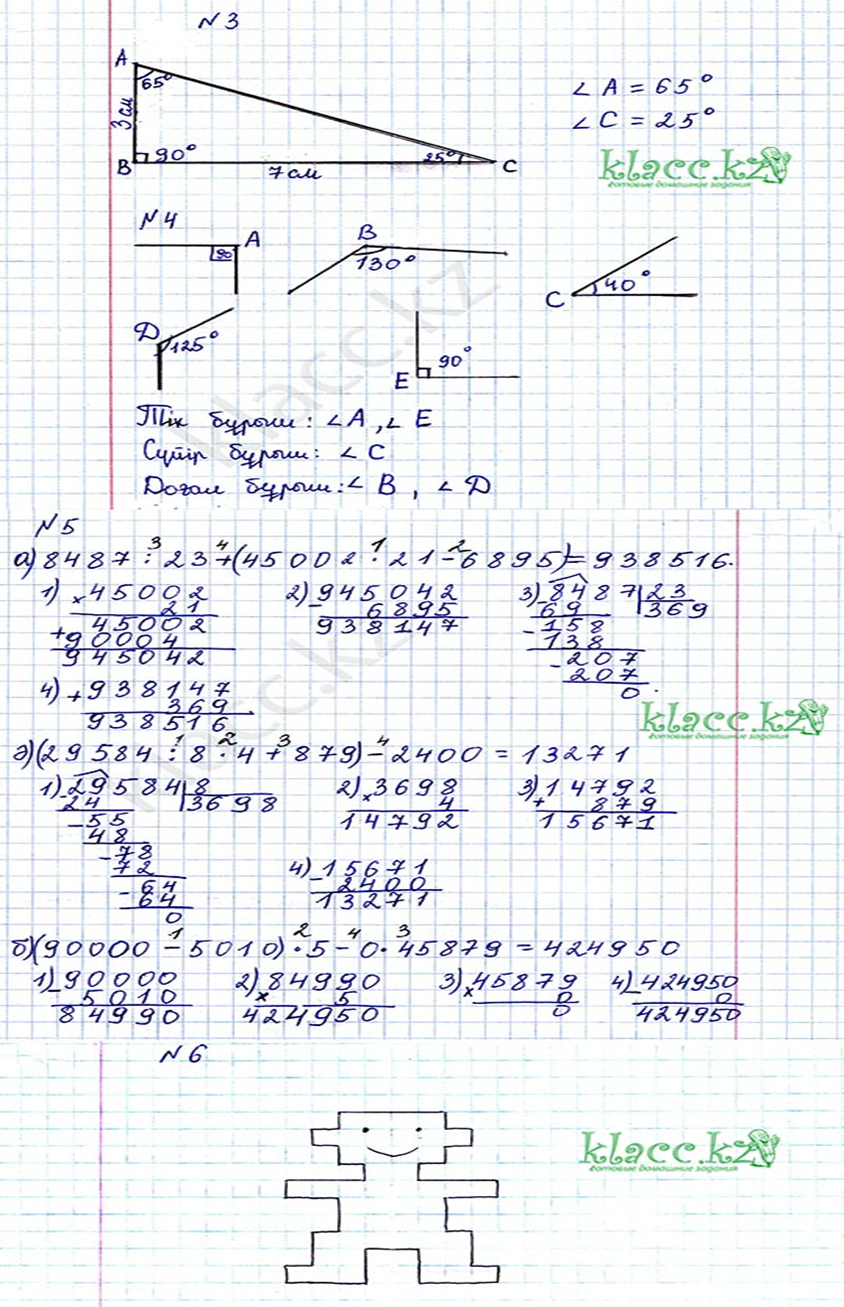 N3
A
65°
3 см
B
90°
7 см
25°
C
∠ A = 65°
∠ C = 25°
klacc.kz
готовые домашние задания
N4
90
A
B
130°
C
40°
Д
125°
E
90°
Тік бұрыш: ∠ A, ∠ E
Сүйір бұрыш: ∠ C
Доғал бұрыш: ∠ B, ∠ Д
klacc.kz
N5
3 4 1 2
а) 8487 : 23 + (45002 · 21 - 6895) = 938516.
1) × 45002
21
+ 45002
90004
945042
2) - 945042
6895
938147
3) - 8487 | 23
69 369
- 158
138
- 207
207
0.
4) + 938147
369
938516
klacc.kz
готовые домашние задания
1 2 3 4
ә) (29584 : 8 · 4 + 879) - 2400 = 13271
1) - 29584 | 8
24 3698
- 55
48
- 78
72
- 64
64
0
2) × 3698
4
14792
3) + 14792
879
15671
4) - 15671
2400
13271
klacc.kz
1 2 4 3
б) (90000 - 5010) · 5 - 0 · 45879 = 424950
1) - 90000
5010
84990
2) × 84990
5
424950
3) × 45879
0
0
4) - 424950
0
424950
N6
klacc.kz
готовые домашние задания